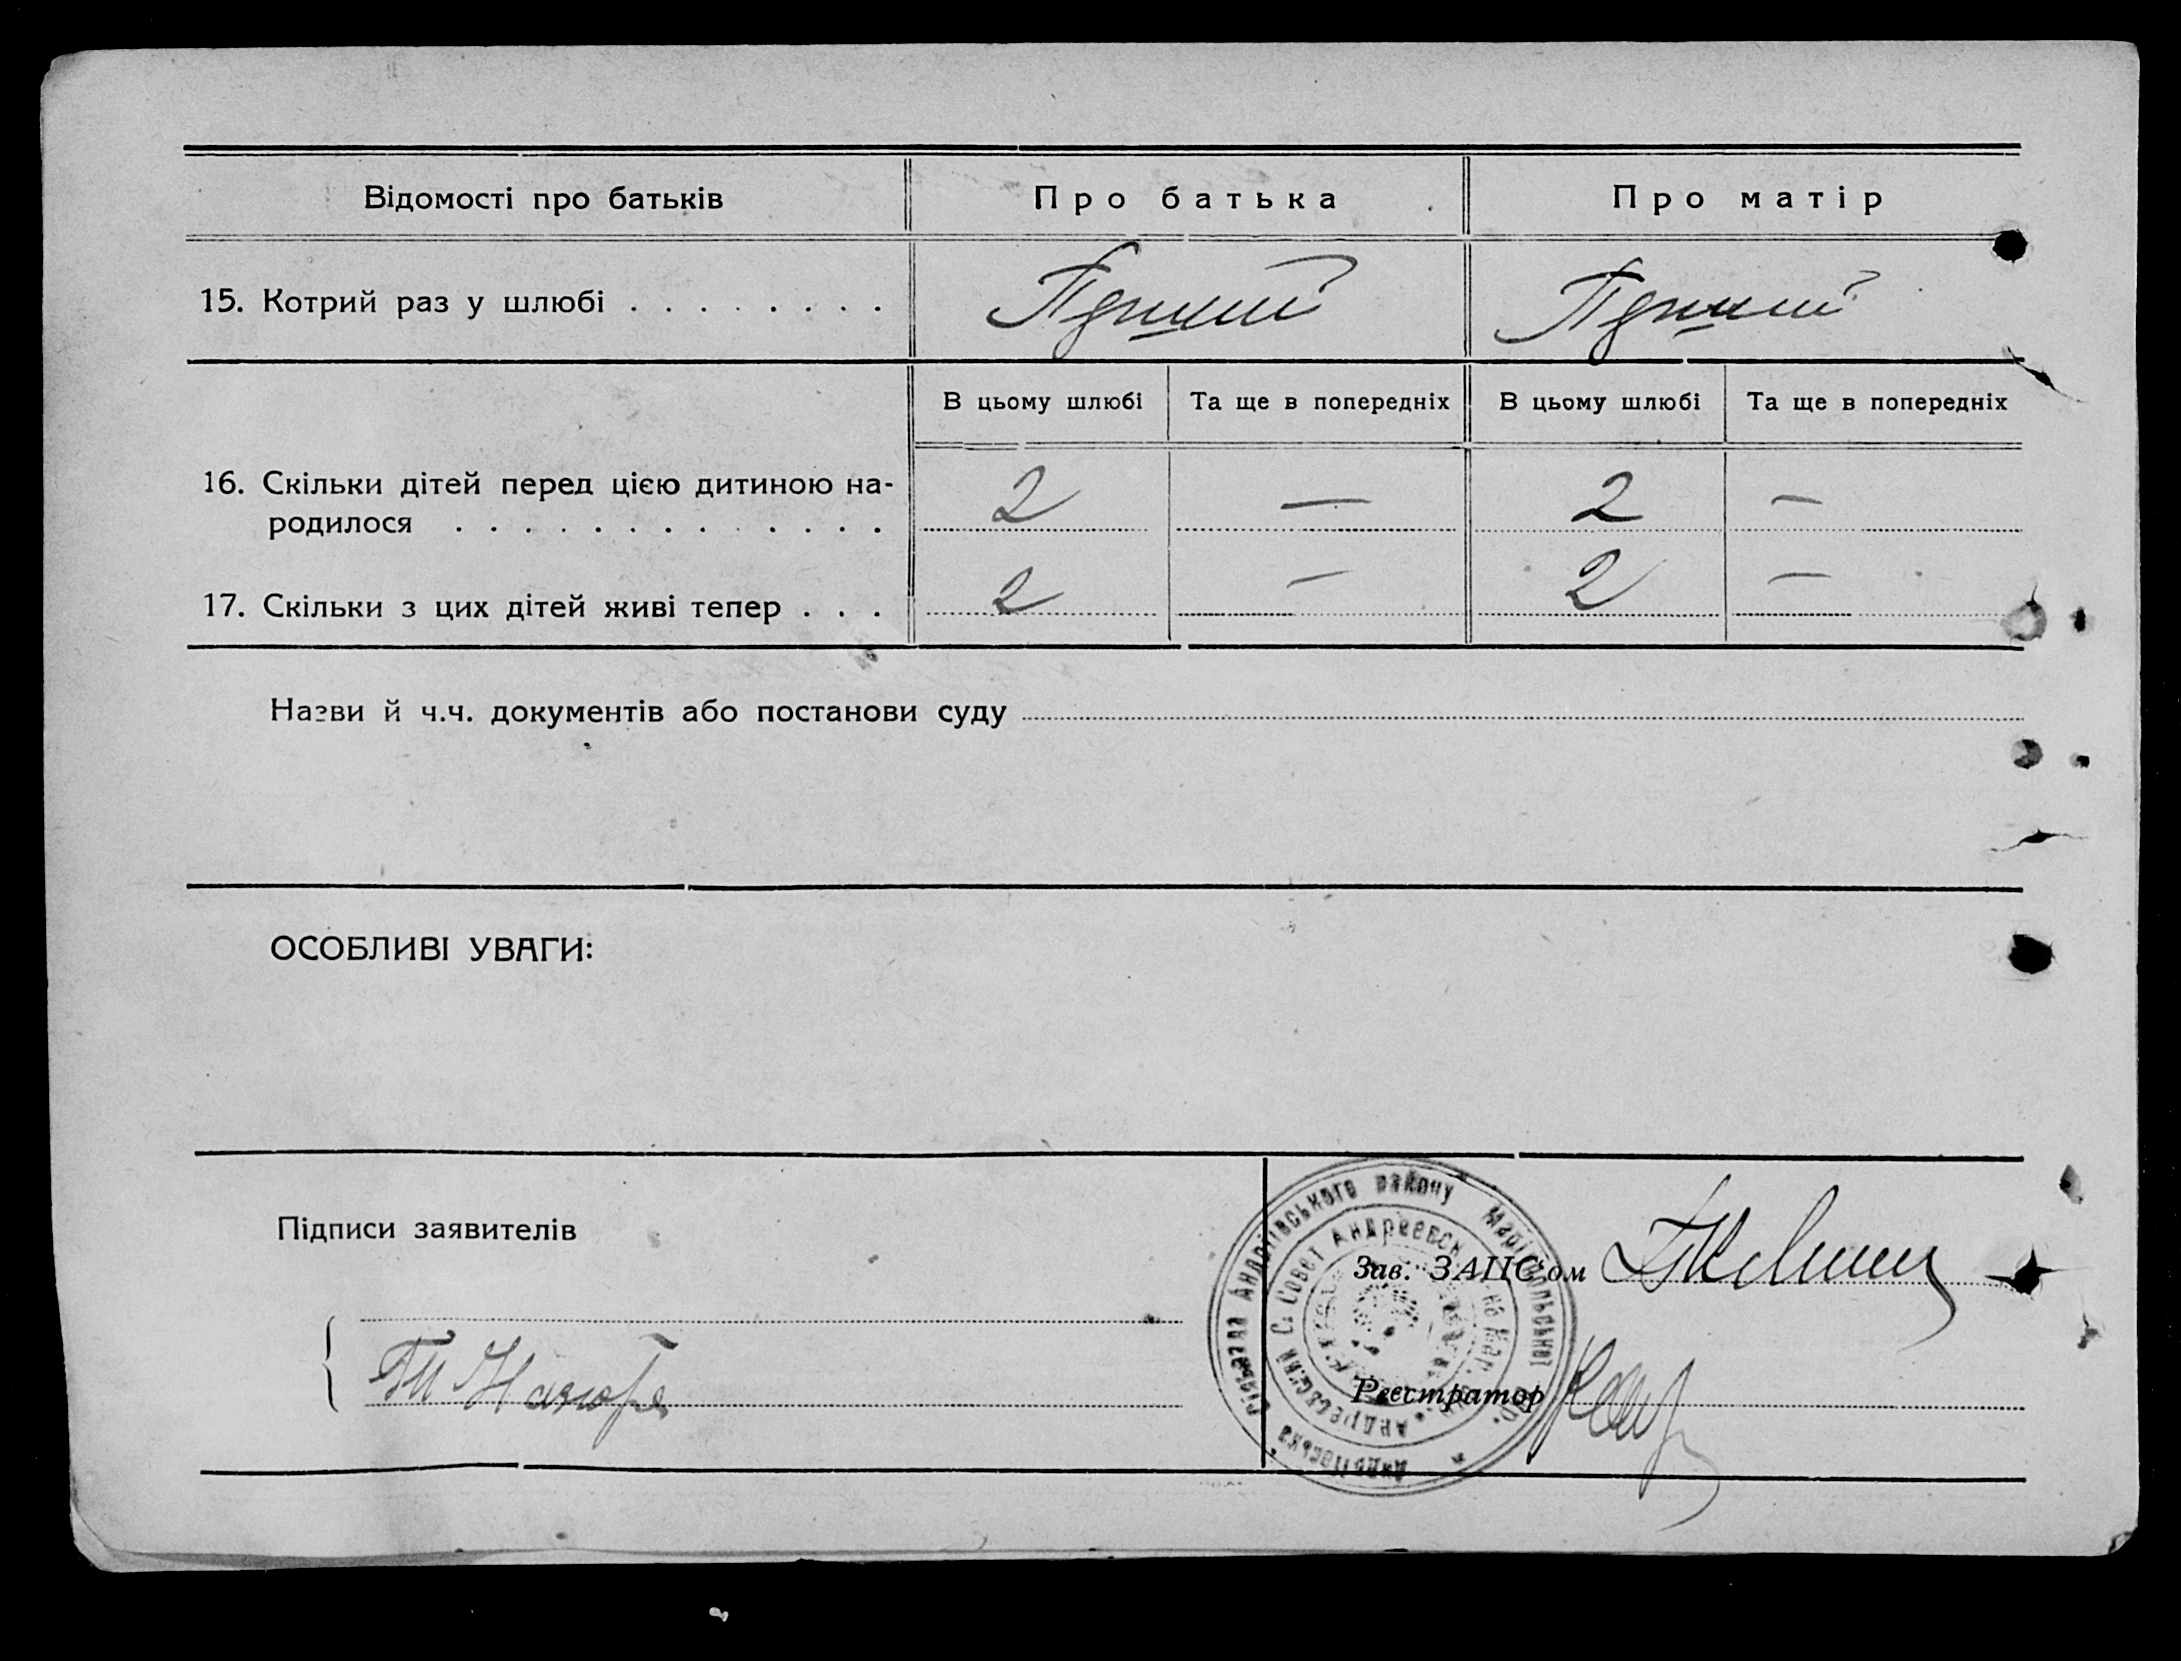 Відомості про батьків
Про батька
Про матір
15. Котрий раз у шлюбі . . . . . . . .
Перший
Перший
В цьому шлюбі
Та ще в попередніх
В цьому шлюбі
Та ще в попередніх
16. Скільки дітей перед цією дитиною на-
родилося . . . . . . . . . . . . .
2 — 2 —
17. Скільки з цих дітей живі тепер . . .
2 — 2 —
Назви й ч.ч. документів або постанови суду
ОСОБЛИВІ УВАГИ:
Підписи заявителів
Зав. ЗАЦС'ом
Реєстратор
Андріївська Сільрада Андріївського району Маріюпольської
Андреевский С. Совет Андреевск